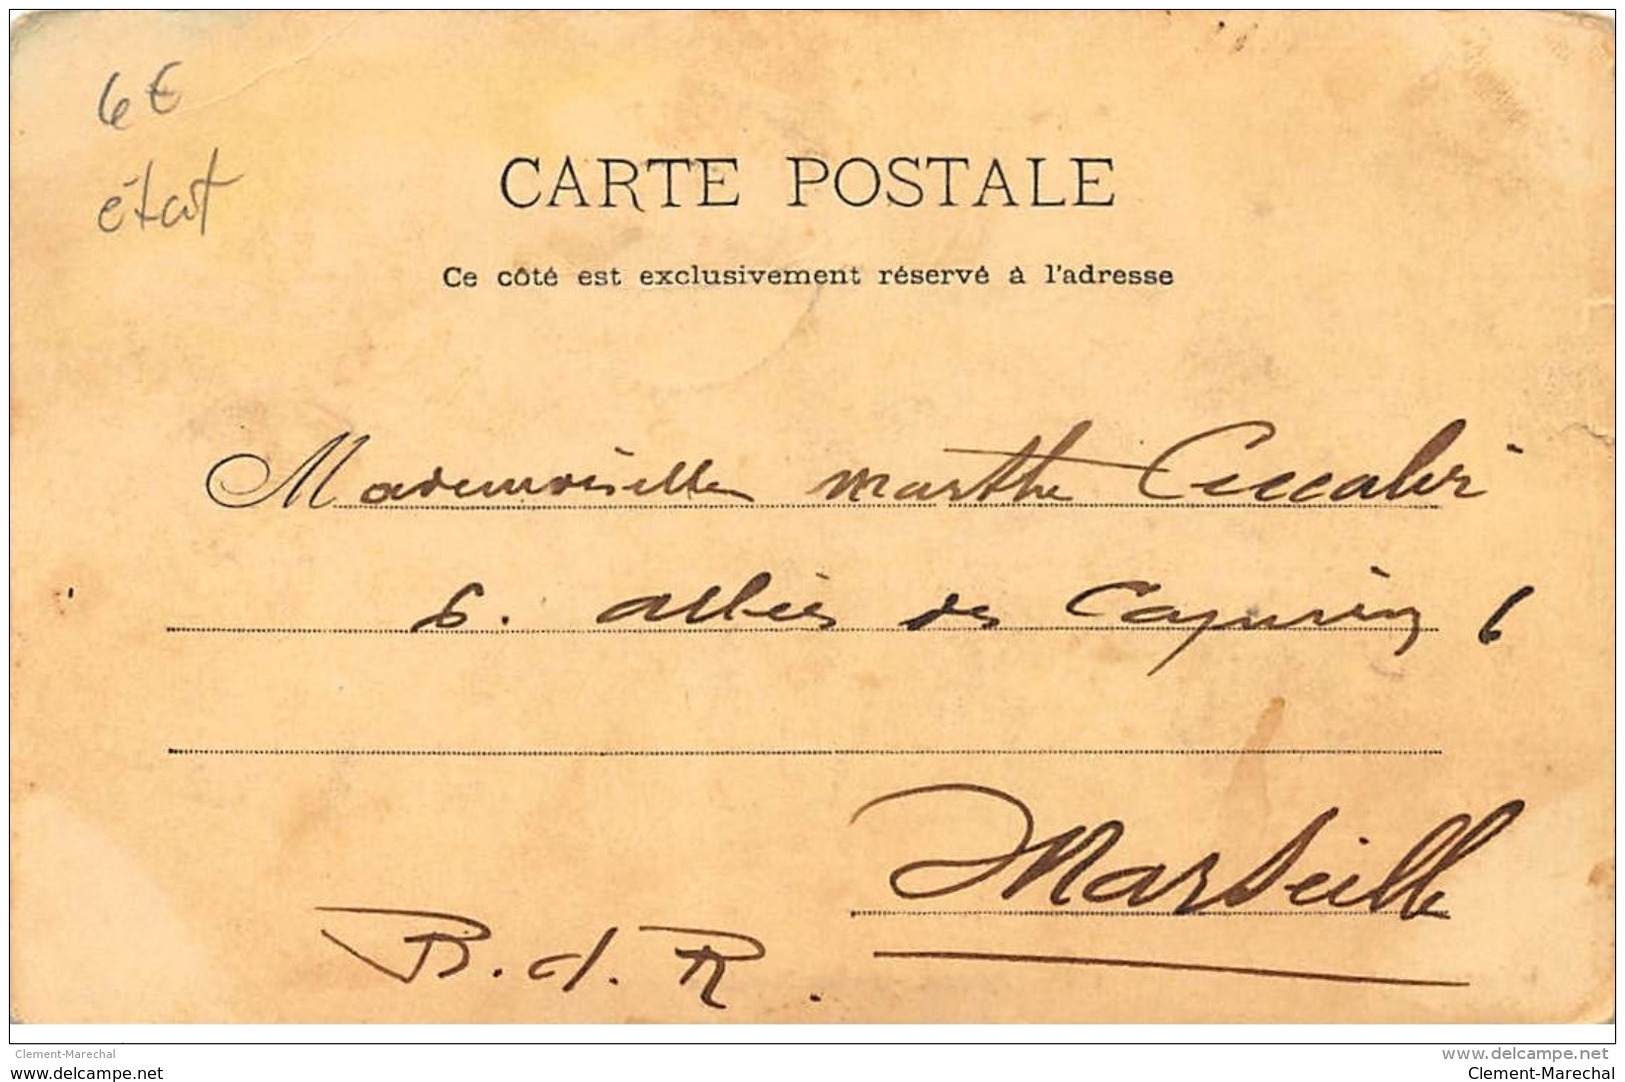 6€
état
CARTE POSTALE
Ce côté est exclusivement réservé à l'adresse
Mademoiselle Marthe
6. allées des Capucines 6
Marseille
B. d. R.
Clement-Marechal
www.delcampe.net
www.delcampe.net
Clement-Marechal